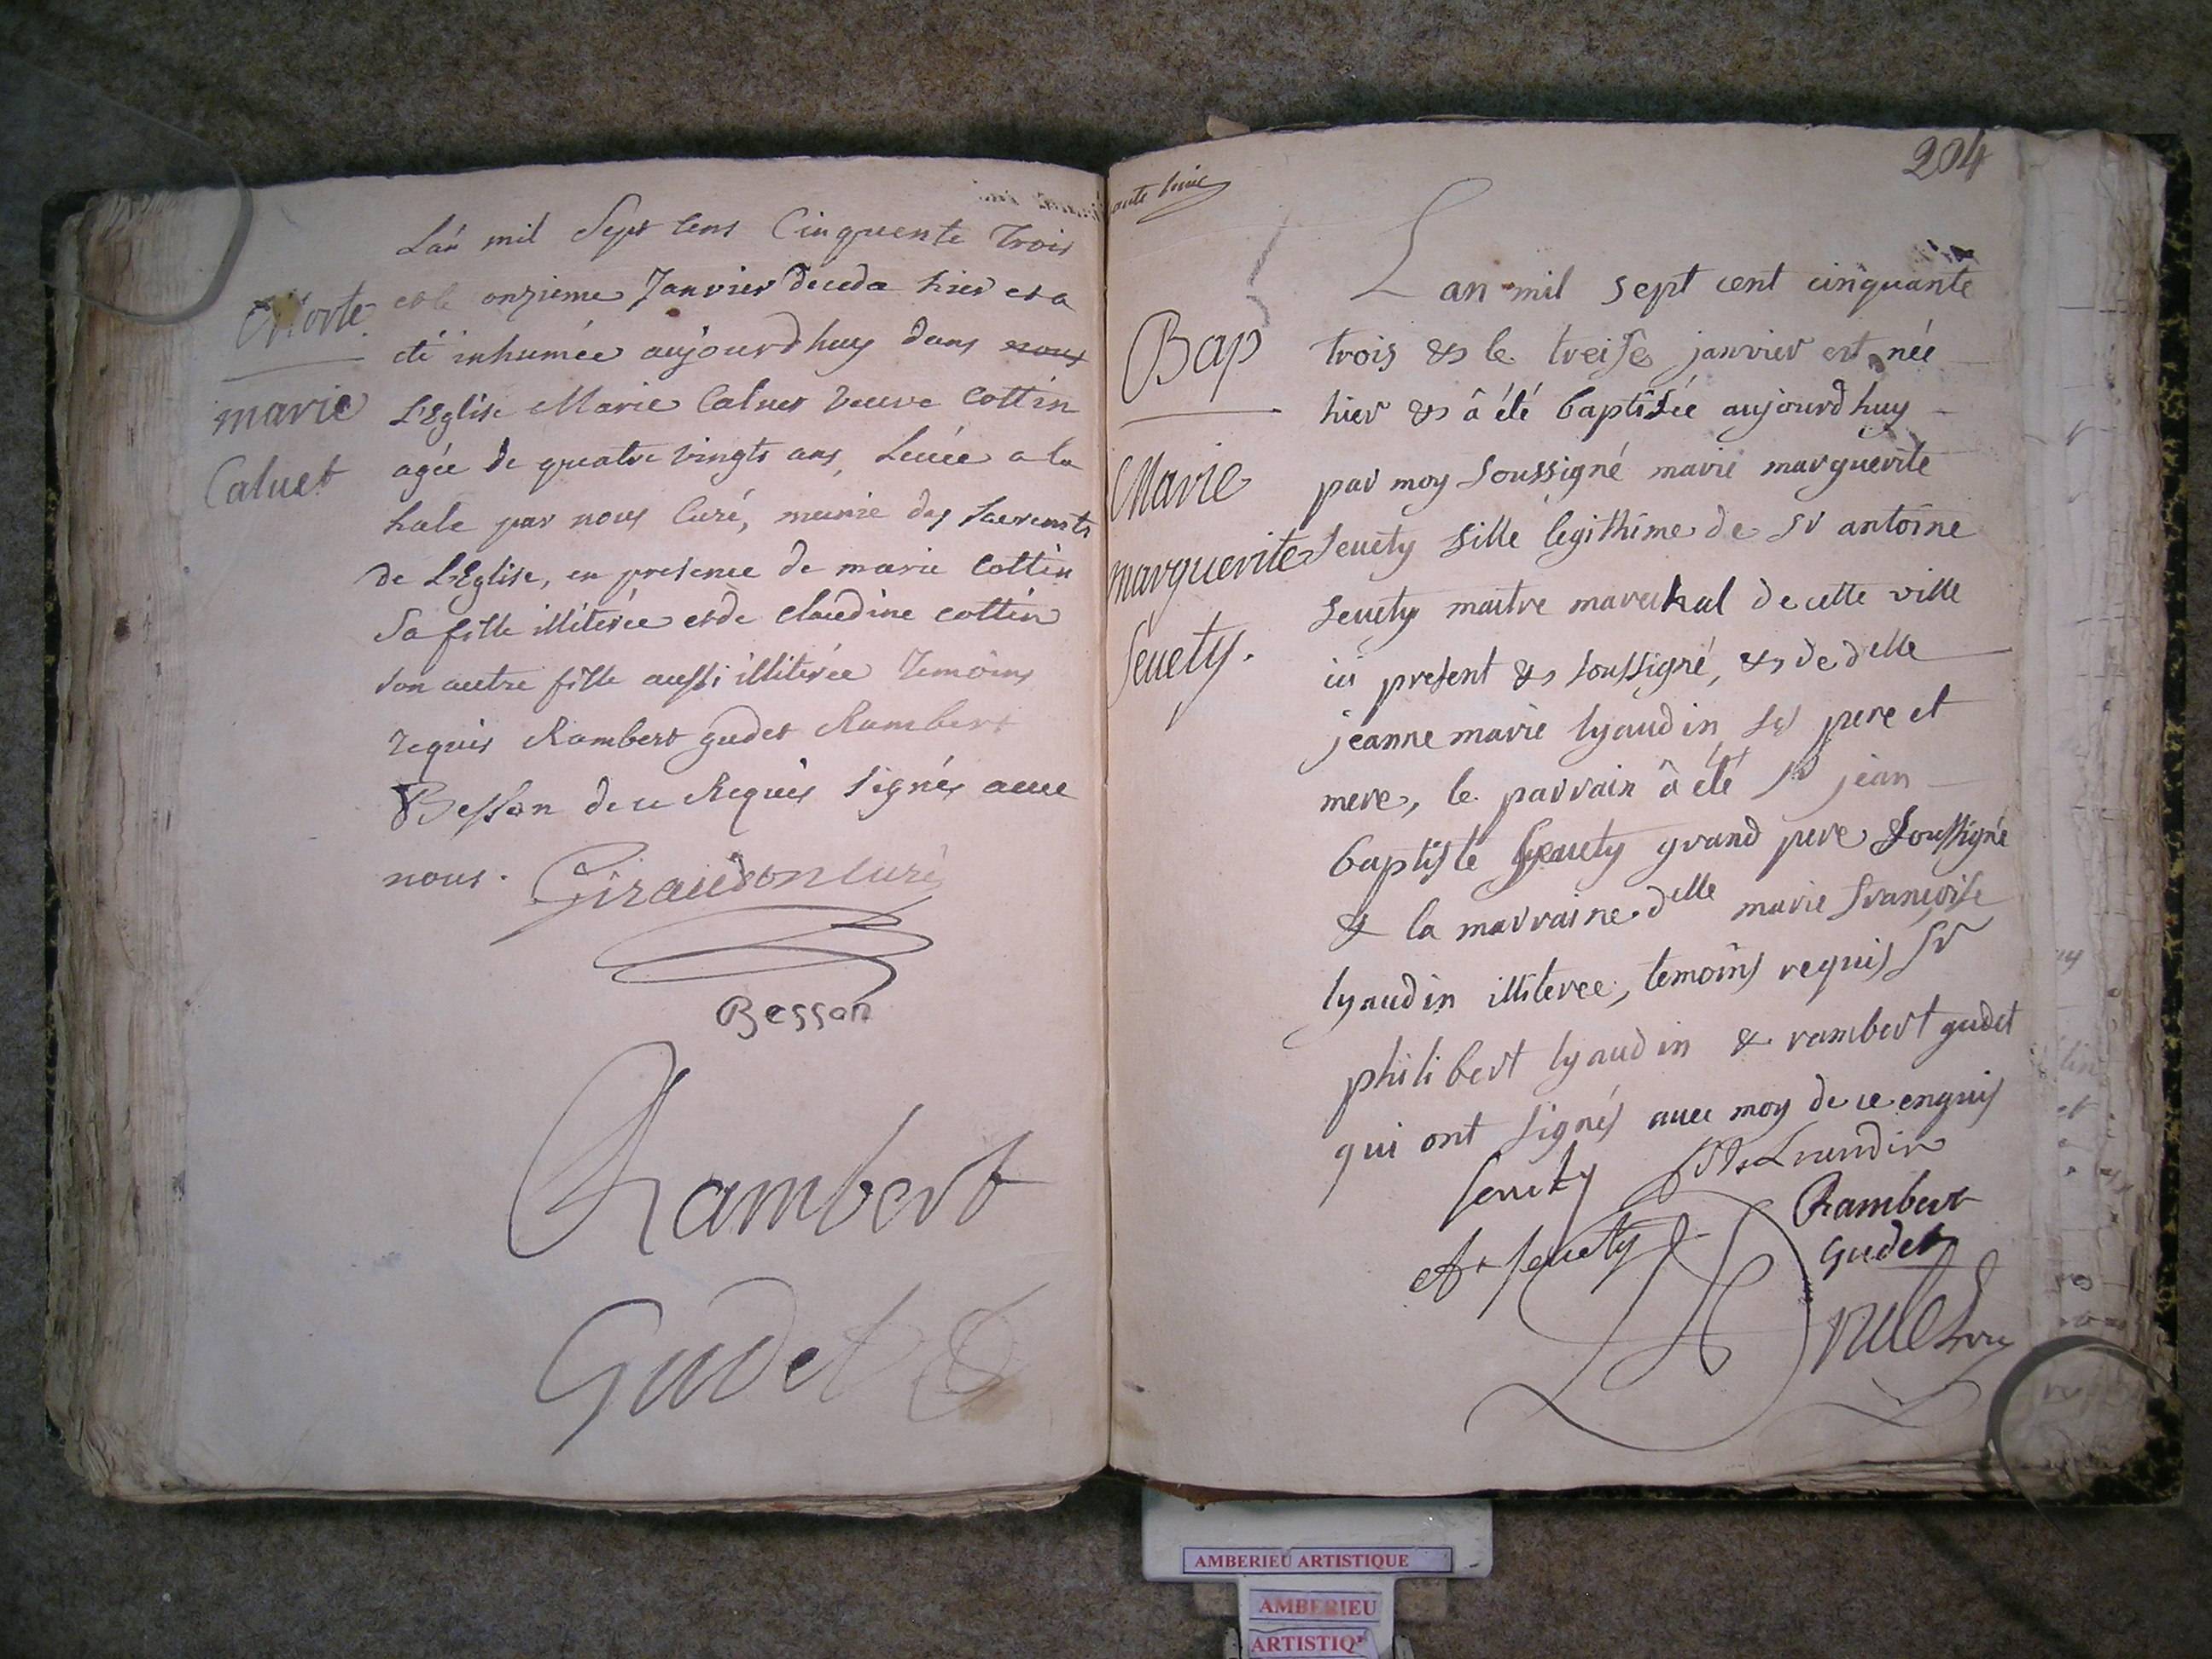 Morte
marie
Caluet
L'an mil Sept Cens Cinquente Trois
et le onzieme Janvier deceda hier et a
été inhumée aujourd huy dans nous
L'Eglise Marie Caluet Veuve Cottin
agée de quatre vingts ans, Leuée a la
hale par nous Curé, munie des Sacremts
de L'Eglise, en presence de marie Cottin
Sa fille illiterée et de claudine cottin
son autre fille aussi illiterée Temoins
requis Rambert gudet Rambert
Besson de ce Requis signés auec
nous. Giraudon Curé
Besson
Rambert
Gudet
204
Bap
Marie
marguerite
Seuety.
L an mil sept cent cinquante
trois & le treise janvier est née
hier & â été baptisée aujourd huy
par moy soussigné marie marguerite
Seuety fille legithime de Sr antoine
Seuety maitre marechal de cette ville
ici present & soussigné, & de delle
jeanne marie lyaudin ses pere et
mere, le parrain â été Sr jean
baptiste Seuety grand pere soussigné
& la marraine delle marie françoise
lyaudin illiteree, temoins requis Sr
philibert lyaudin & rambert gudet
qui ont signés auec moy de ce enquis
Seuety
A. Seuety
Rambert
Gudet
AMBERIEU ARTISTIQUE
AMBERIEU
ARTISTIQ